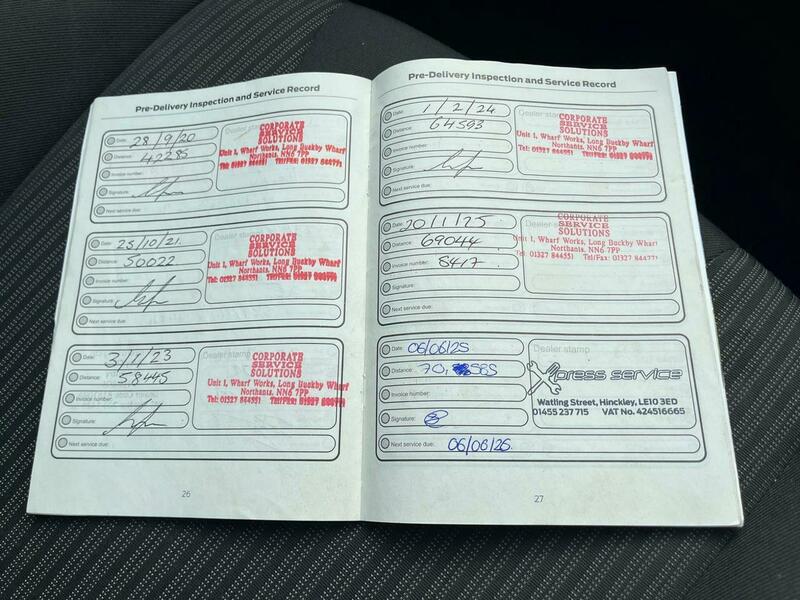 Pre-Delivery Inspection and Service Record
Date: 28/9/20
Distance: 42285
Invoice number:
Signature:
Next service due:
Dealer stamp
CORPORATE
SERVICE
SOLUTIONS
Unit 1, Wharf Works, Long Buckby Wharf
Northants. NN6 7PP
Tel: 01327 844551 Tel/Fax: 01327 844771
Date: 25/10/21.
Distance: 50022
Invoice number:
Signature:
Next service due:
CORPORATE
SERVICE
SOLUTIONS
Unit 1, Wharf Works, Long Buckby Wharf
Northants. NN6 7PP
Tel: 01327 844551 Tel/Fax: 01327 844771
Date: 3/1/23
Distance: 58445
Invoice number:
Signature:
Next service due:
Dealer stamp
CORPORATE
SERVICE
SOLUTIONS
Unit 1, Wharf Works, Long Buckby Wharf
Northants. NN6 7PP
Tel: 01327 844551 Tel/Fax: 01327 844771
26
Pre-Delivery Inspection and Service Record
Date: 1/2/24
Distance: 64593
Invoice number:
Signature:
Next service due:
CORPORATE
SERVICE
SOLUTIONS
Unit 1, Wharf Works, Long Buckby Wharf
Northants. NN6 7PP
Tel: 01327 844551 Tel/Fax: 01327 844771
Date: 20/1/25
Distance: 69044
Invoice number: 8417.
Signature:
Next service due:
Dealer stamp
CORPORATE
SERVICE
SOLUTIONS
Unit 1, Wharf Works, Long Buckby Wharf
Northants. NN6 7PP
Tel: 01327 844551 Tel/Fax: 01327 844771
Date: 06/06/25
Distance: 70, 585
Invoice number:
Signature:
Next service due: 06/06/26.
Dealer stamp
Xpress service
Watling Street, Hinckley, LE10 3ED
01455 237 715 VAT No. 424516665
27